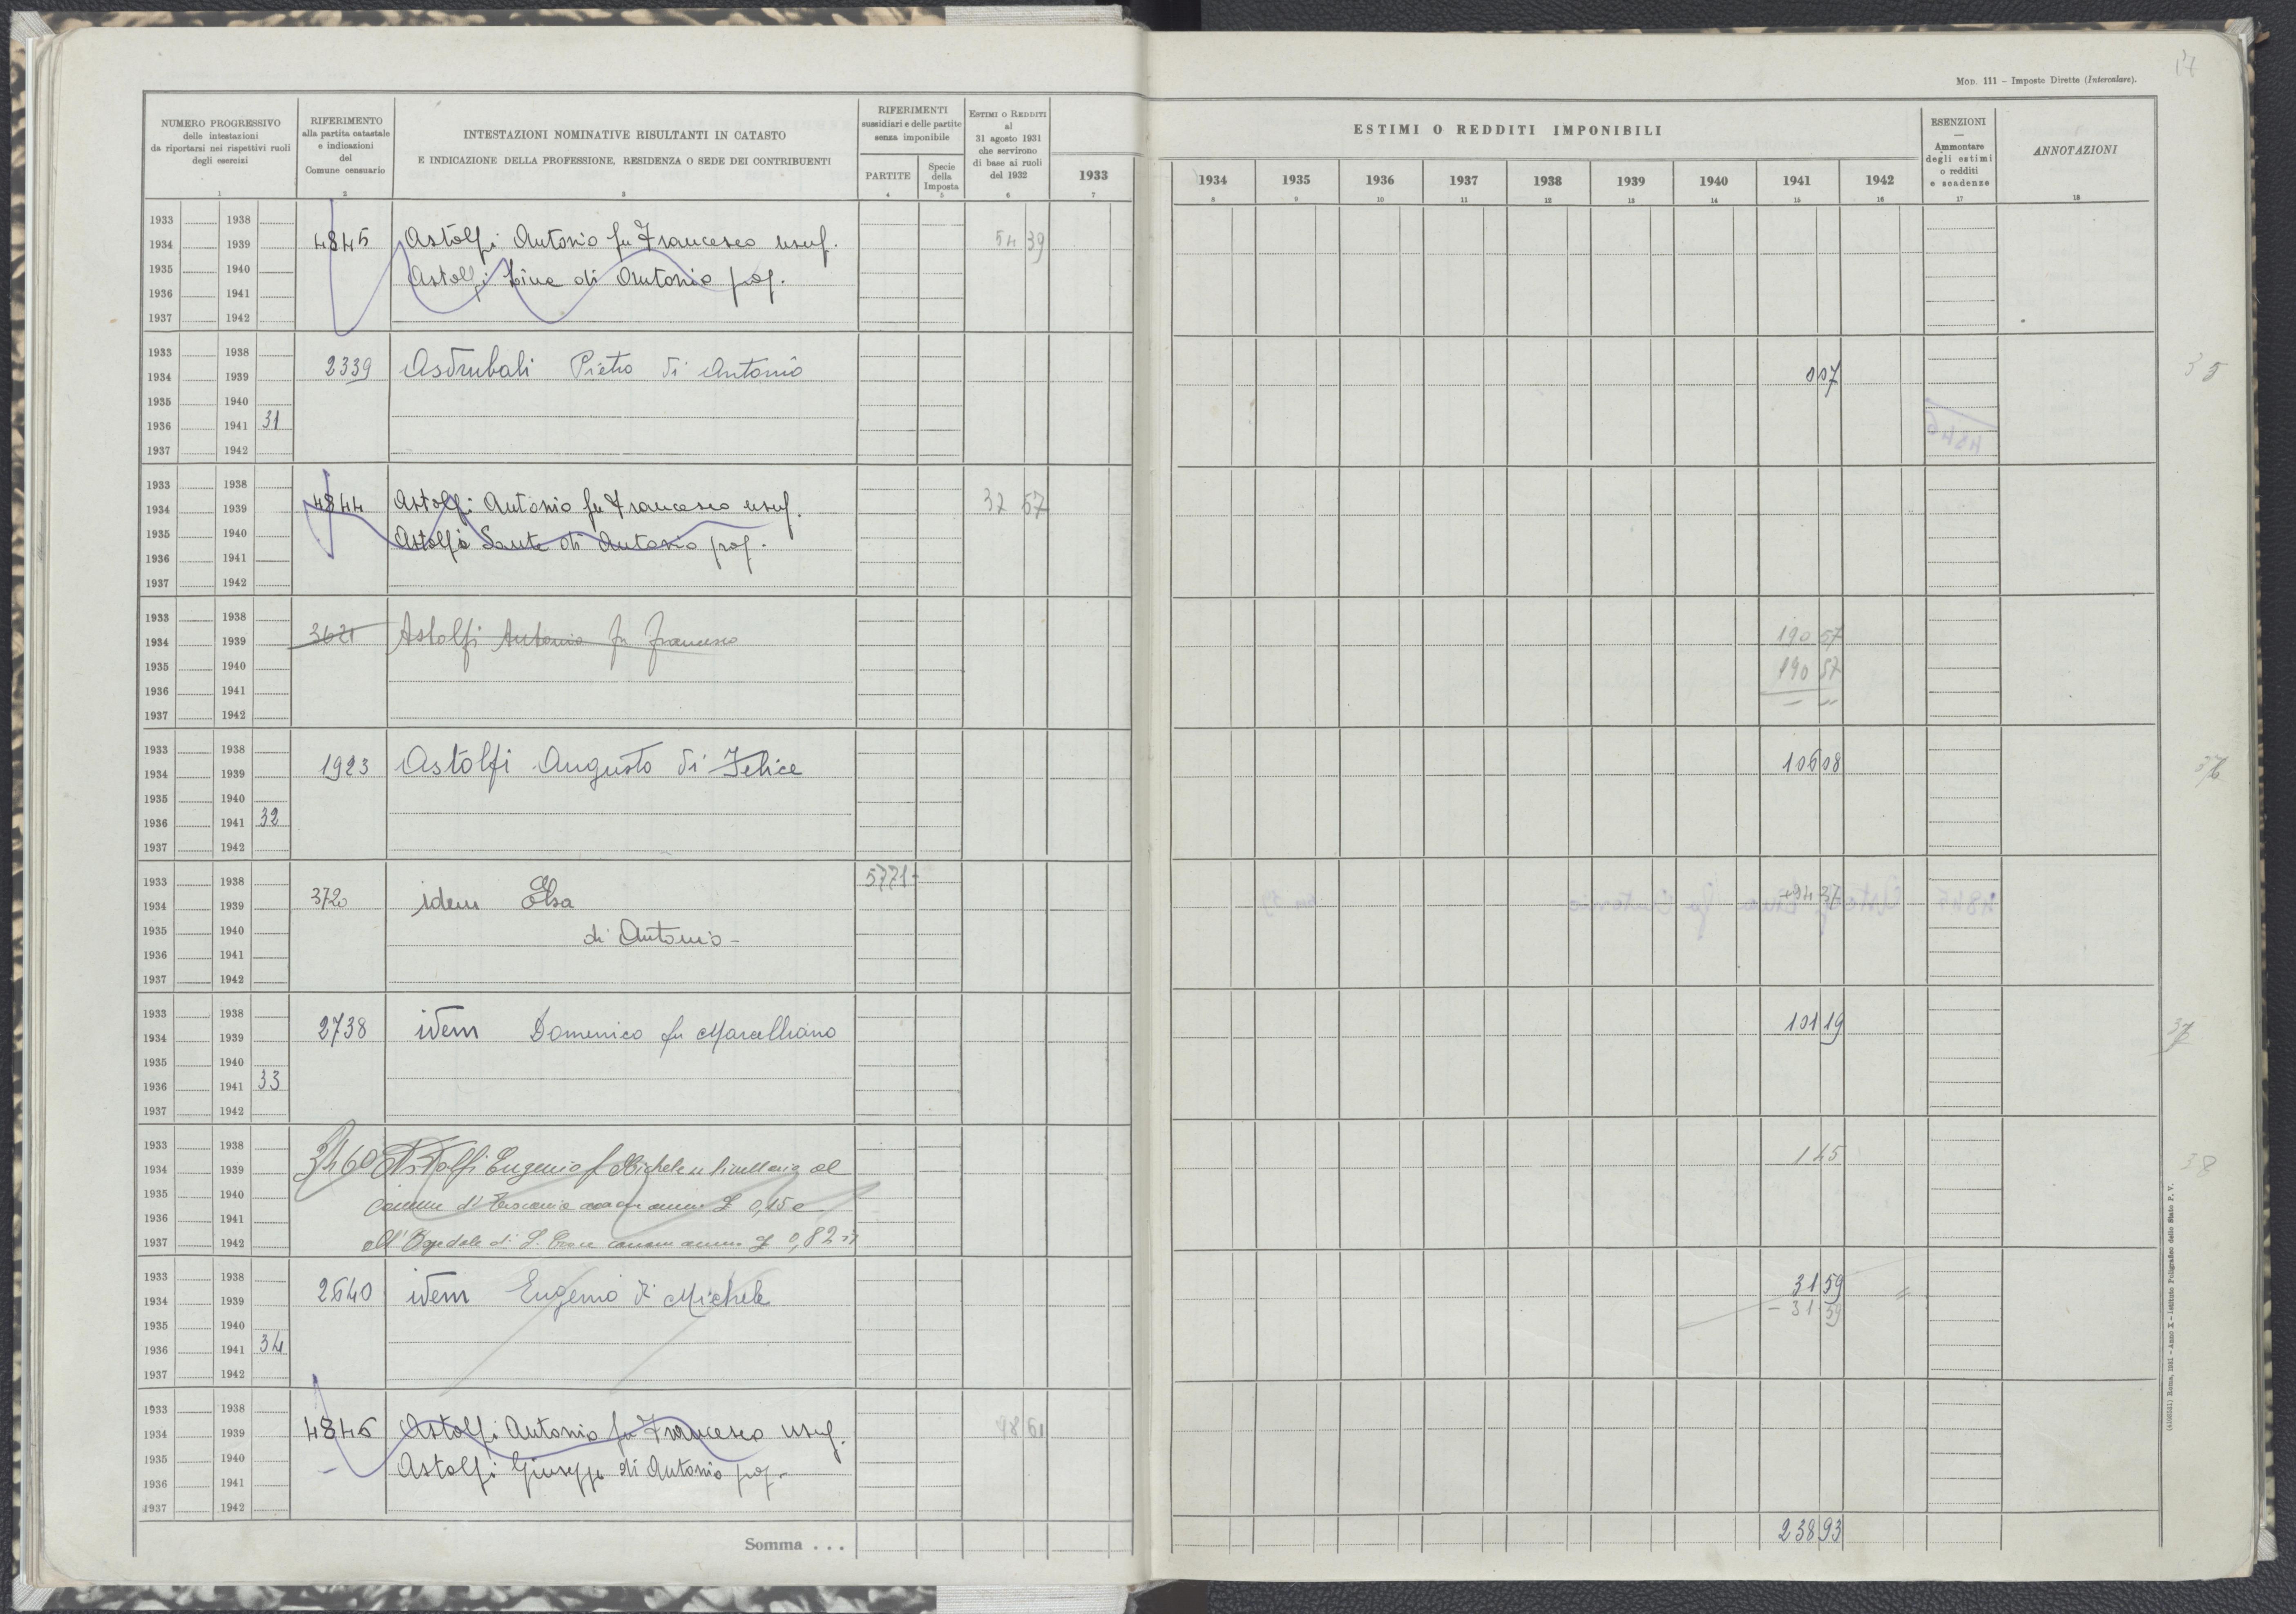 Mod. 111 - Imposte Dirette (Intercalare).
NUMERO PROGRESSIVO
delle intestazioni
da riportarsi nei rispettivi ruoli
degli esercizi
1
RIFERIMENTO
alla partita catastale
e indicazioni
del
Comune censuario
2
INTESTAZIONI NOMINATIVE RISULTANTI IN CATASTO
E INDICAZIONE DELLA PROFESSIONE, RESIDENZA O SEDE DEI CONTRIBUENTI
3
RIFERIMENTI
sussidiari e delle partite
senza imponibile
PARTITE
4
Specie
della
Imposta
5
ESTIMI O REDDITI
al
31 agosto 1931
che servirono
di base ai ruoli
del 1932
6
ESTIMI O REDDITI IMPONIBILI
1933 1934 1935 1936 1937 1938 1939 1940 1941 1942
7 8 9 10 11 12 13 14 15 16
ESENZIONI
—
Ammontare
degli estimi
o redditi
e scadenze
17
ANNOTAZIONI
18
1933 1938
1934 1939 4845 Astolfi Antonio fu Francesco usuf. 54 39
1935 1940 Astolfi di Antonio prop.
1936 1941
1937 1942
1933 1938
1934 1939 2339 Asdrubali Pietro di Antonio 0 07 35
1935 1940
1936 1941 31
1937 1942
1933 1938
1934 1939 4844 Astolfi Antonio fu Francesco usuf. 37 57
1935 1940 Astolfi Sante di Antonio prop.
1936 1941
1937 1942
1933 1938
1934 1939 3621 Astolfi Antonio fu Francesco 190 57
1935 1940 190 57
1936 1941
1937 1942
1933 1938
1934 1939 1923 Astolfi Augusto di Felice 106 08 36
1935 1940
1936 1941 32
1937 1942
1933 1938 5771
1934 1939 3720 idem Elsa +94 37
1935 1940 di Antonio -
1936 1941
1937 1942
1933 1938
1934 1939 2738 idem Domenico fu Marcelliano 101 19 37
1935 1940
1936 1941 33
1937 1942
1933 1938
1934 1939 3460 Astolfi Eugenio f Michele livellario al 1 45 38
1935 1940
1936 1941 Comune d' annuo £ 0,15 e
1937 1942 all'Ospedale di S. Croce canone annuo £ 0,82
1933 1938
1934 1939 2640 idem Eugenio di Michele 31 59
1935 1940 - 31 59
1936 1941 34
1937 1942
1933 1938
1934 1939 4846 Astolfi Antonio fu Francesco usuf. 48 61
1935 1940 Astolfi Giuseppe di Antonio prop.
1936 1941
1937 1942
Somma . . . 238 93
(4102521) Roma, 1931 - Anno X - Istituto Poligrafico dello Stato P. V.